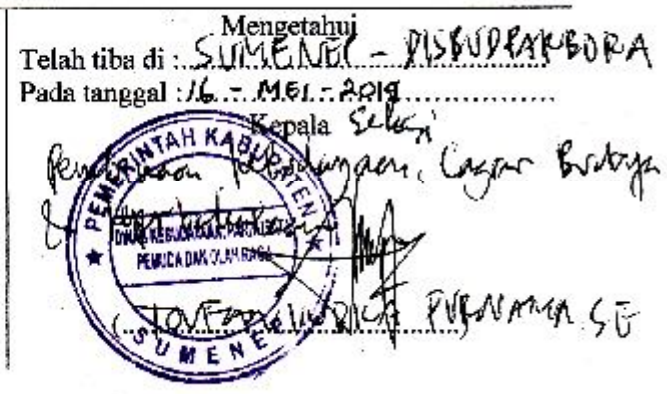 Mengetahui
Telah tiba di : SUMENEP - DISBUDPARPORA
Pada tanggal : 16 - MEI - 2019
Kepala Seksi
Kebudayaan, Cagar Budaya
&
PEMERINTAH KABUPATEN
DINAS KEBUDAYAAN, PARIWISATA
PEMUDA DAN OLAH RAGA
SUMENEP
PURNAMA, SE